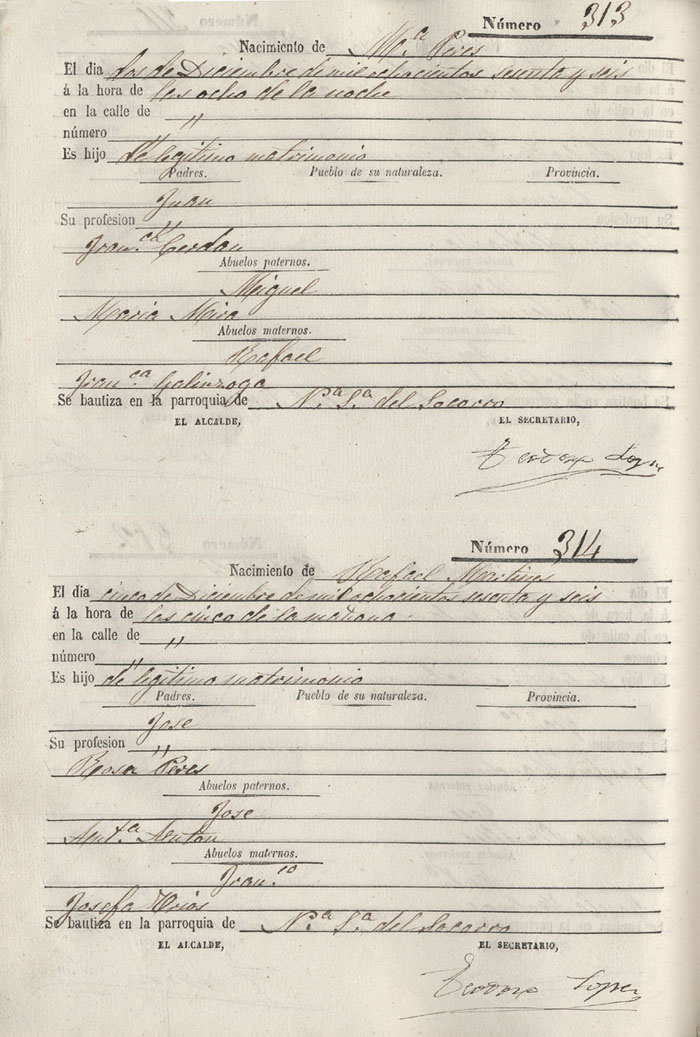 Número 313
Nacimiento de Mª Peres
El dia dos de Diciembre de mil ochocientos sesenta y seis
á la hora de las ocho de la noche
en la calle de "
número "
Es hijo de legitimo matrimonio
Padres. Pueblo de su naturaleza. Provincia.
Juan
Su profesion "
Franca Cerdan
Abuelos paternos.
Miguel
Maria Mira
Abuelos maternos.
Rafael
Franca Galinzoga
Se bautiza en la parroquia de Nª Sª del Socorro
EL ALCALDE, EL SECRETARIO,
Teodoro Lopez
Número 314
Nacimiento de Rafael Martines
El dia cinco de Diciembre de mil ochocientos sesenta y seis
á la hora de las cinco de la mañana
en la calle de "
número "
Es hijo de legitimo matrimonio
Padres. Pueblo de su naturaleza. Provincia.
Jose
Su profesion "
Rosa Peres
Abuelos paternos.
Jose
Antª Anton
Abuelos maternos.
Franco
Josefa Urios
Se bautiza en la parroquia de Nª Sª del Socorro
EL ALCALDE, EL SECRETARIO,
Teodoro Lopez